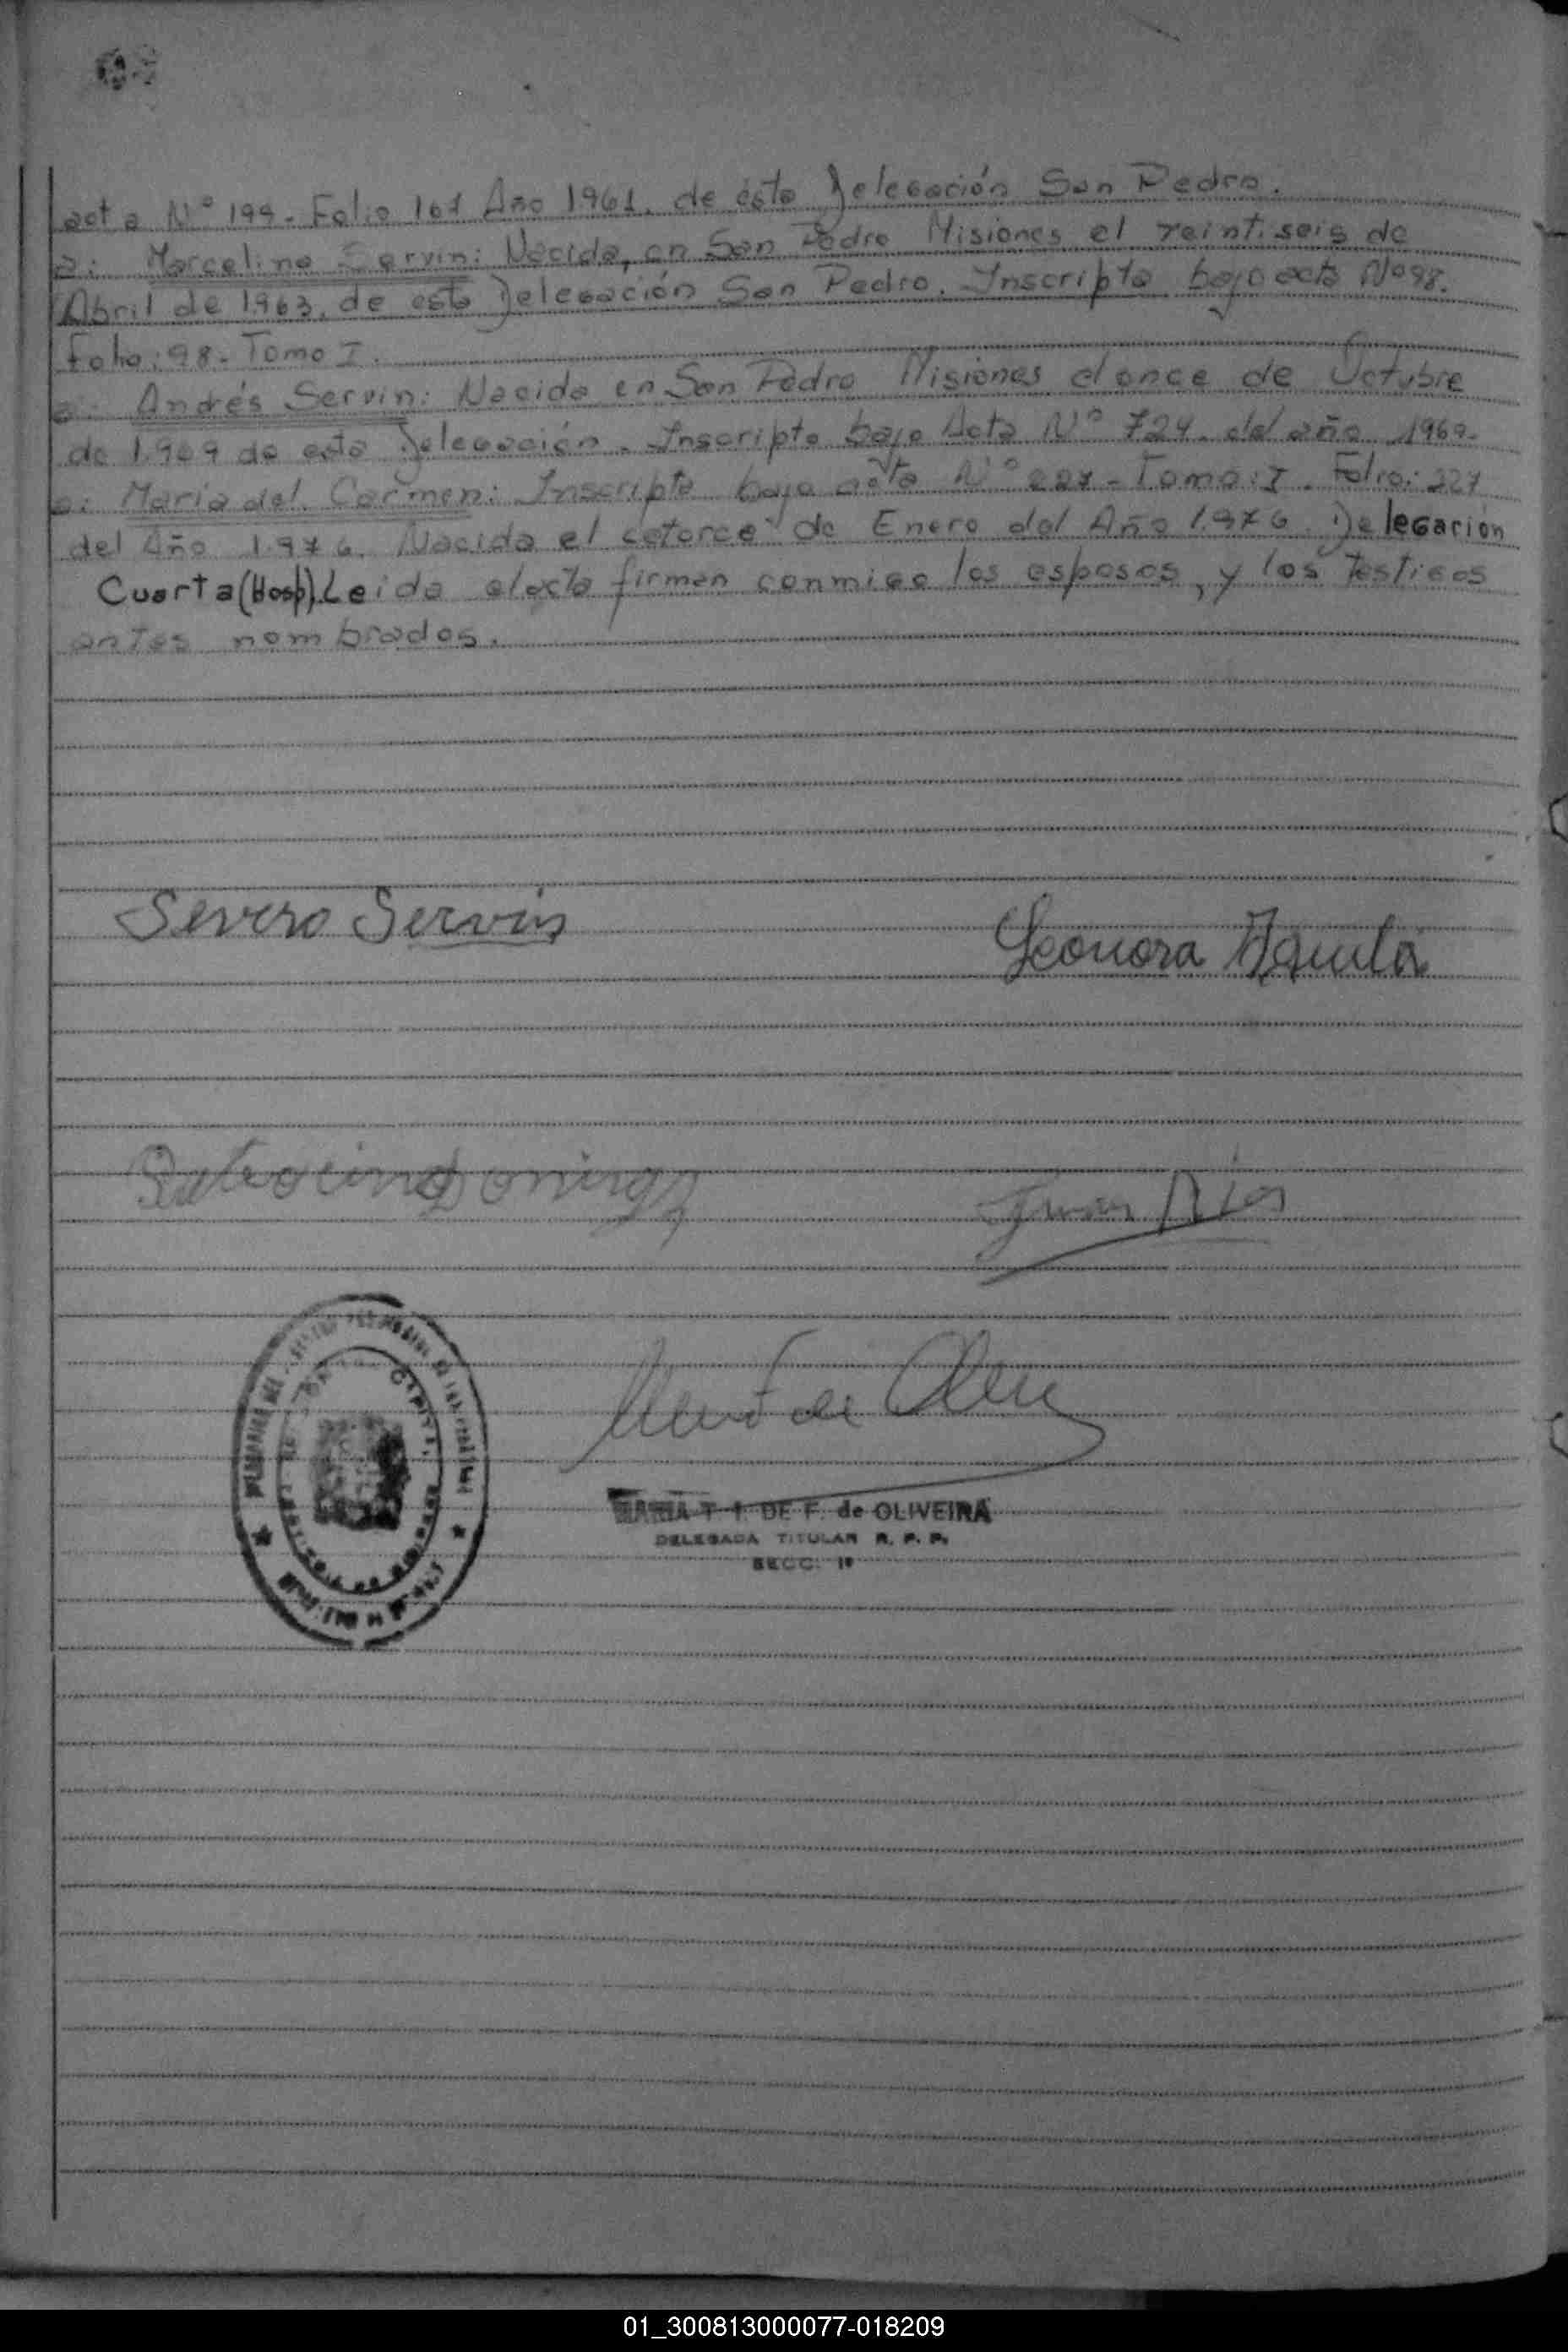 acta N° 199. Folio 161 Año 1961. de ésta Delegación San Pedro.
a: Marcelino Servin: Nacido, en San Pedro Misiones el veintiseis de
Abril de 1963, de esta Delegación San Pedro. Inscripto bajo acta N° 98.
Folio: 98 - Tomo I.
a: Andrés Servin: Nacido en San Pedro Misiones el once de Octubre
de 1.969 de esta Delegación. Inscripto bajo Acta N° 724. del año 1969.
a: Maria del Carmen: Inscripta bajo acta N° 227 - Tomo: I. Folio: 227
del Año 1.976. Nacida el catorce de Enero del Año 1.976. Delegación
Cuarta (Hosp). Leida el acta firman conmigo los esposos, y los testigos
antes nombrados.
Severo Servin
Leonora Aguila
Juan Rios
MARIA T. I. DE F. de OLIVEIRA
DELEGADA TITULAR R. P. P.
SECC. 1ª
01_300813000077-018209